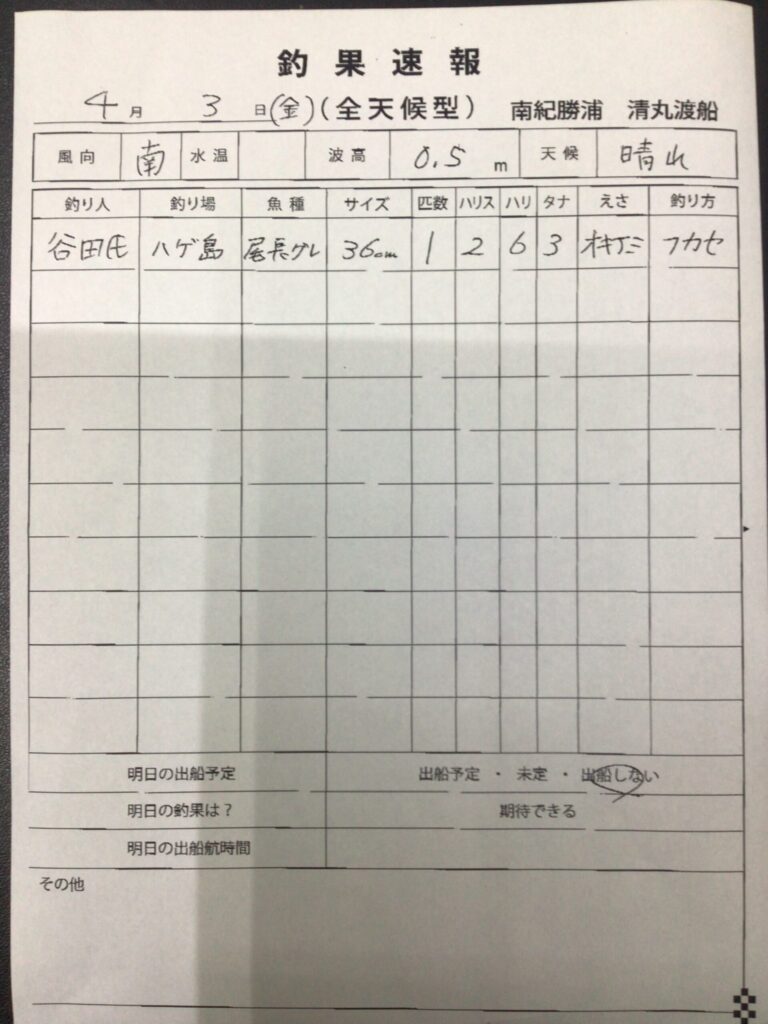 釣果速報
4月 3日(金)(全天候型) 南紀勝浦 清丸渡船
風向 南 水温 波高 0.5 m 天候 晴れ
釣り人 釣り場 魚種 サイズ 匹数 ハリス ハリ タナ えさ 釣り方
谷田氏 ハゲ島 尾長グレ 36cm 1 2 6 3 オキアミ フカセ
明日の出船予定 出船予定 ・ 未定 ・ 出船しない
明日の釣果は? 期待できる
明日の出船航時間
その他